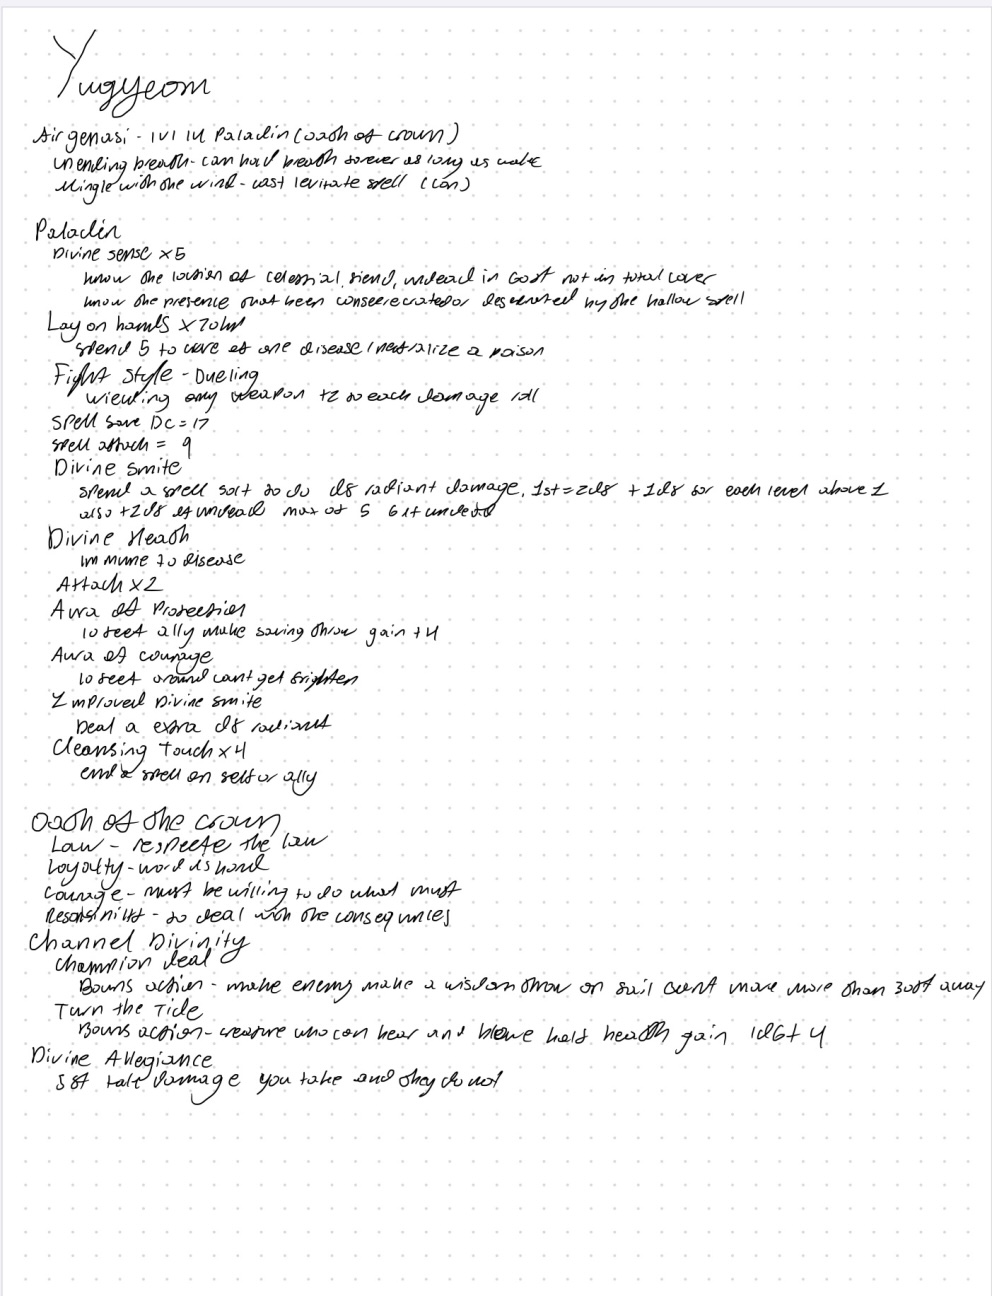 Yugyeom
Air genasi - lvl 14 Paladin (oath of crown)
unending breath - can hold breath forever as long as awake
Mingle with the wind - cast levitate spell (con)
Paladin
Divine sense x5
know the location of celestial, fiend, undead in 60ft not in total cover
know the presence that been consecrated or desecrated by the hallow spell
Lay on hands x70
spend 5 to cure of one disease / neutralize a poison
Fight style - Dueling
wielding any weapon +2 to each damage roll
spell save DC = 17
spell attack = 9
Divine smite
spend a spell slot to do d8 radiant damage, 1st = 2d8 + 1d8 for each level above 1
also +1d8 if undead max of 5 6 if undead
Divine Heath
immune to disease
Attack x2
Aura of Protection
10 feet ally make saving throw gain +4
Aura of courage
10 feet around cant get frighten
Improved Divine smite
Deal a extra d8 radiant
Cleansing Touch x4
end a spell on self or ally
Oath of the crown
Law - respecte the law
Loyalty - word is
Courage - must be willing to do what must
- to deal with the consequnces
Channel Divinity
Champion
Bouns action - make enemy make a wisdom throw on fail cant move more than 30ft away
Turn the Tide
Bouns action - creature who can hear and below half health gain 1d6+4
Divine Allegiance
5ft take damage you take and they do not